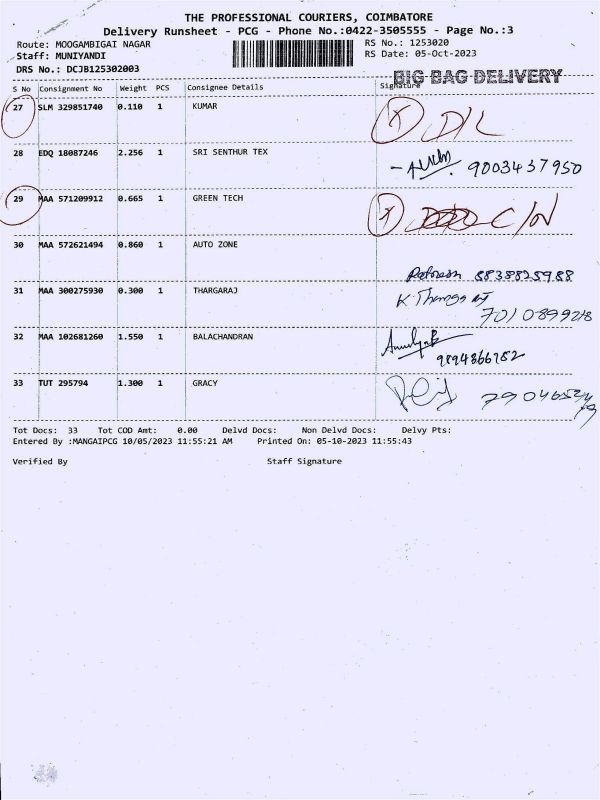 THE PROFESSIONAL COURIERS, COIMBATORE
Delivery Runsheet - PCG - Phone No.:0422-3505555 - Page No.:3
Route: MOOGAMBIGAI NAGAR RS No.: 1253020
Staff: MUNIYANDI RS Date: 05-Oct-2023
DRS No.: DCJB125302003
BIG BAG DELIVERY
S No Consignment No Weight PCS Consignee Details Signature
27 SLM 329851740 0.110 1 KUMAR D/L
28 EDQ 18087246 2.256 1 SRI SENTHUR TEX
9003437950
29 MAA 571209912 0.665 1 GREEN TECH C/N
30 MAA 572621494 0.860 1 AUTO ZONE
8838825988
31 MAA 300275930 0.300 1 THARGARAJ
32 MAA 102681260 1.550 1 BALACHANDRAN
33 TUT 295794 1.300 1 GRACY
Tot Docs: 33 Tot COD Amt: 0.00 Delvd Docs: Non Delvd Docs: Delvy Pts:
Entered By :MANGAIPCG 10/05/2023 11:55:21 AM Printed On: 05-10-2023 11:55:43
Verified By Staff Signature